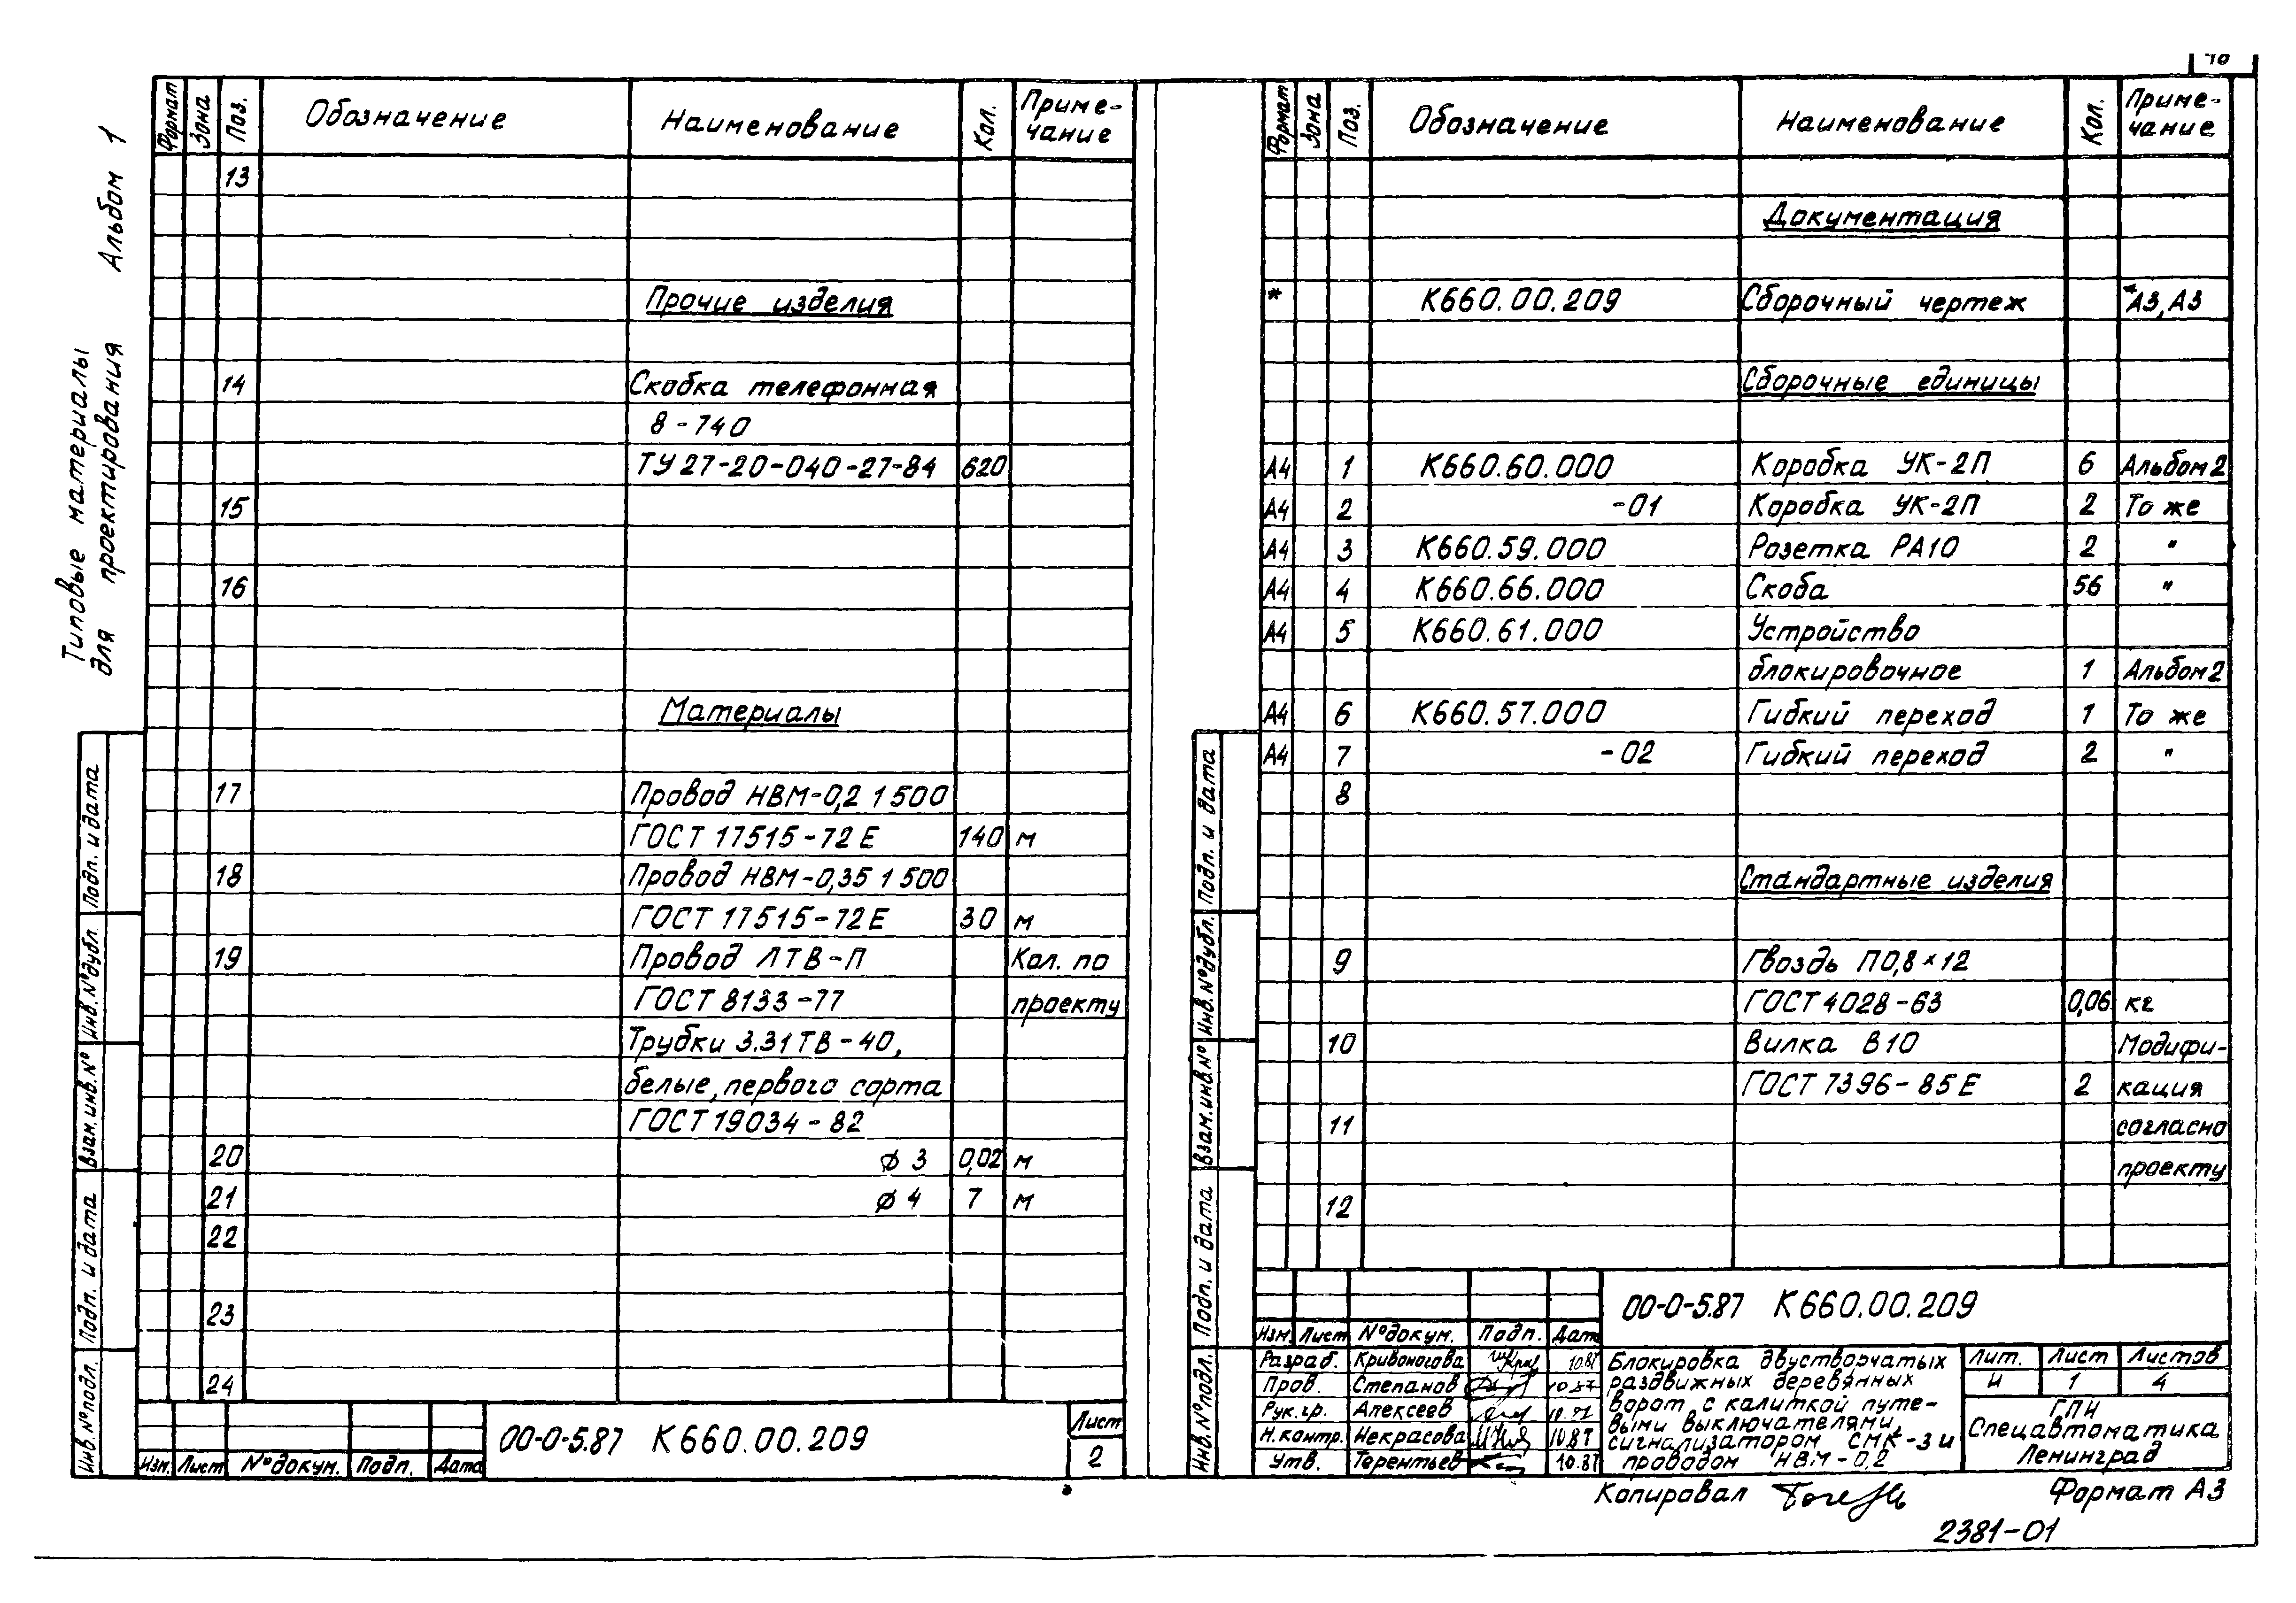 Типовые материалы
для проектирования Альбом 1
Формат Зона Поз. Обозначение Наименование Кол. Приме-
чание
13
Прочие изделия
14 Скобка телефонная
8-740
ТУ 27-20-040-27-84 620
15
16
Материалы
17 Провод НВМ-0,2 1 500
ГОСТ 17515-72 Е 140 м
18 Провод НВМ-0,35 1 500
ГОСТ 17515-72 Е 30 м
19 Провод ЛТВ-П Кол. по
ГОСТ 8133-77 проекту
Трубки 3.31 ТВ-40,
белые, первого сорта
ГОСТ 19034-82
20 ø 3 0,02 м
21 ø 4 7 м
22
23
24
00-0-5.87 К660.00.209
Лист
2
Изм. Лист № докум. Подп. Дата
Подп. и дата
Инв. № дубл
Взам. инв. №
Подп. и дата
Инв. № подл.
Формат Зона Поз. Обозначение Наименование Кол. Приме-
чание
Документация
* К660.00.209 Сборочный чертеж *А3, А3
Сборочные единицы
А4 1 К660.60.000 Коробка УК-2П 6 Альбом 2
А4 2 -01 Коробка УК-2П 2 То же
А4 3 К660.59.000 Розетка РА10 2 "
А4 4 К660.66.000 Скоба 56 "
А4 5 К660.61.000 Устройство
блокировочное 1 Альбом 2
А4 6 К660.57.000 Гибкий переход 1 То же
А4 7 -02 Гибкий переход 2 "
8
Стандартные изделия
9 Гвоздь П0,8×12
ГОСТ 4028-63 0,06 кг
10 Вилка В10 Модифи-
ГОСТ 7396-85 Е 2 кация
11 согласно
проекту
12
Подп. и дата
Инв. № дубл.
Взам. инв. №
Подп. и дата
Инв. № подл.
00-0-5.87 К660.00.209
Изм. Лист № докум. Подп. Дата
Разраб. Кривоногова 10.87
Пров. Степанов 10.87
Рук. гр. Алексеев 10.87
Н. контр. Некрасова 10.87
Утв. Терентьев 10.87
Блокировка двустворчатых
раздвижных деревянных
ворот с калиткой путе-
выми выключателями,
сигнализатором СМК-3 и
проводом НВМ-0,2
Лит. Лист Листов
И 1 4
ГПИ
Спецавтоматика
Ленинград
Копировал Формат А3
2381-01